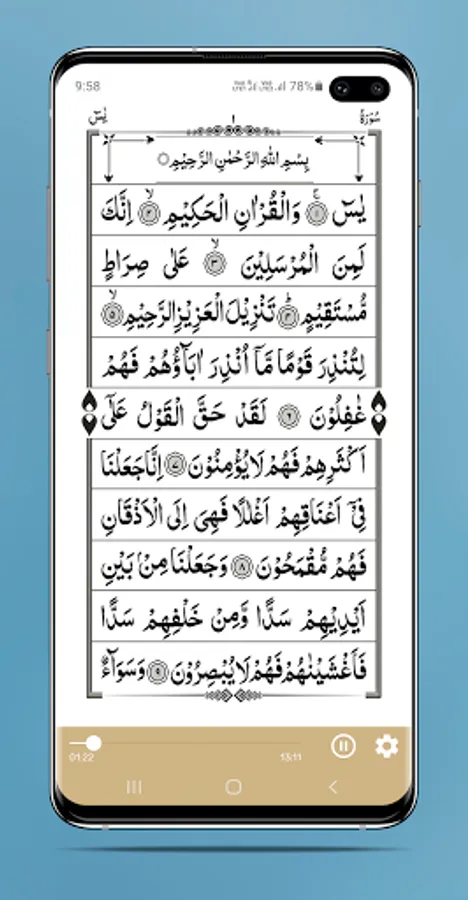 9:58 78%
سُورَة ١ يٰسٓ
بِسْمِ اللّٰهِ الرَّحْمٰنِ الرَّحِيْمِ
يٰسٓ ۚ ﴿١﴾ وَالْقُرْاٰنِ الْحَكِيْمِ ۙ ﴿٢﴾ اِنَّكَ
لَمِنَ الْمُرْسَلِيْنَ ۙ ﴿٣﴾ عَلٰى صِرَاطٍ
مُّسْتَقِيْمٍ ؕ ﴿٤﴾ تَنْزِيْلَ الْعَزِيْزِ الرَّحِيْمِ ۙ ﴿٥﴾
لِتُنْذِرَ قَوْمًا مَّاۤ اُنْذِرَ اٰبَآؤُهُمْ فَهُمْ
غٰفِلُوْنَ ﴿٦﴾ لَقَدْ حَقَّ الْقَوْلُ عَلٰٓى
اَكْثَرِهِمْ فَهُمْ لَا يُؤْمِنُوْنَ ﴿٧﴾ اِنَّا جَعَلْنَا
فِيْۤ اَعْنَاقِهِمْ اَغْلٰلًا فَهِيَ اِلَى الْاَذْقَانِ
فَهُمْ مُّقْمَحُوْنَ ﴿٨﴾ وَجَعَلْنَا مِنْۢ بَيْنِ
اَيْدِيْهِمْ سَدًّا وَّمِنْ خَلْفِهِمْ سَدًّا
فَاَغْشَيْنٰهُمْ فَهُمْ لَا يُبْصِرُوْنَ ﴿٩﴾ وَسَوَآءٌ
01:22 13:11